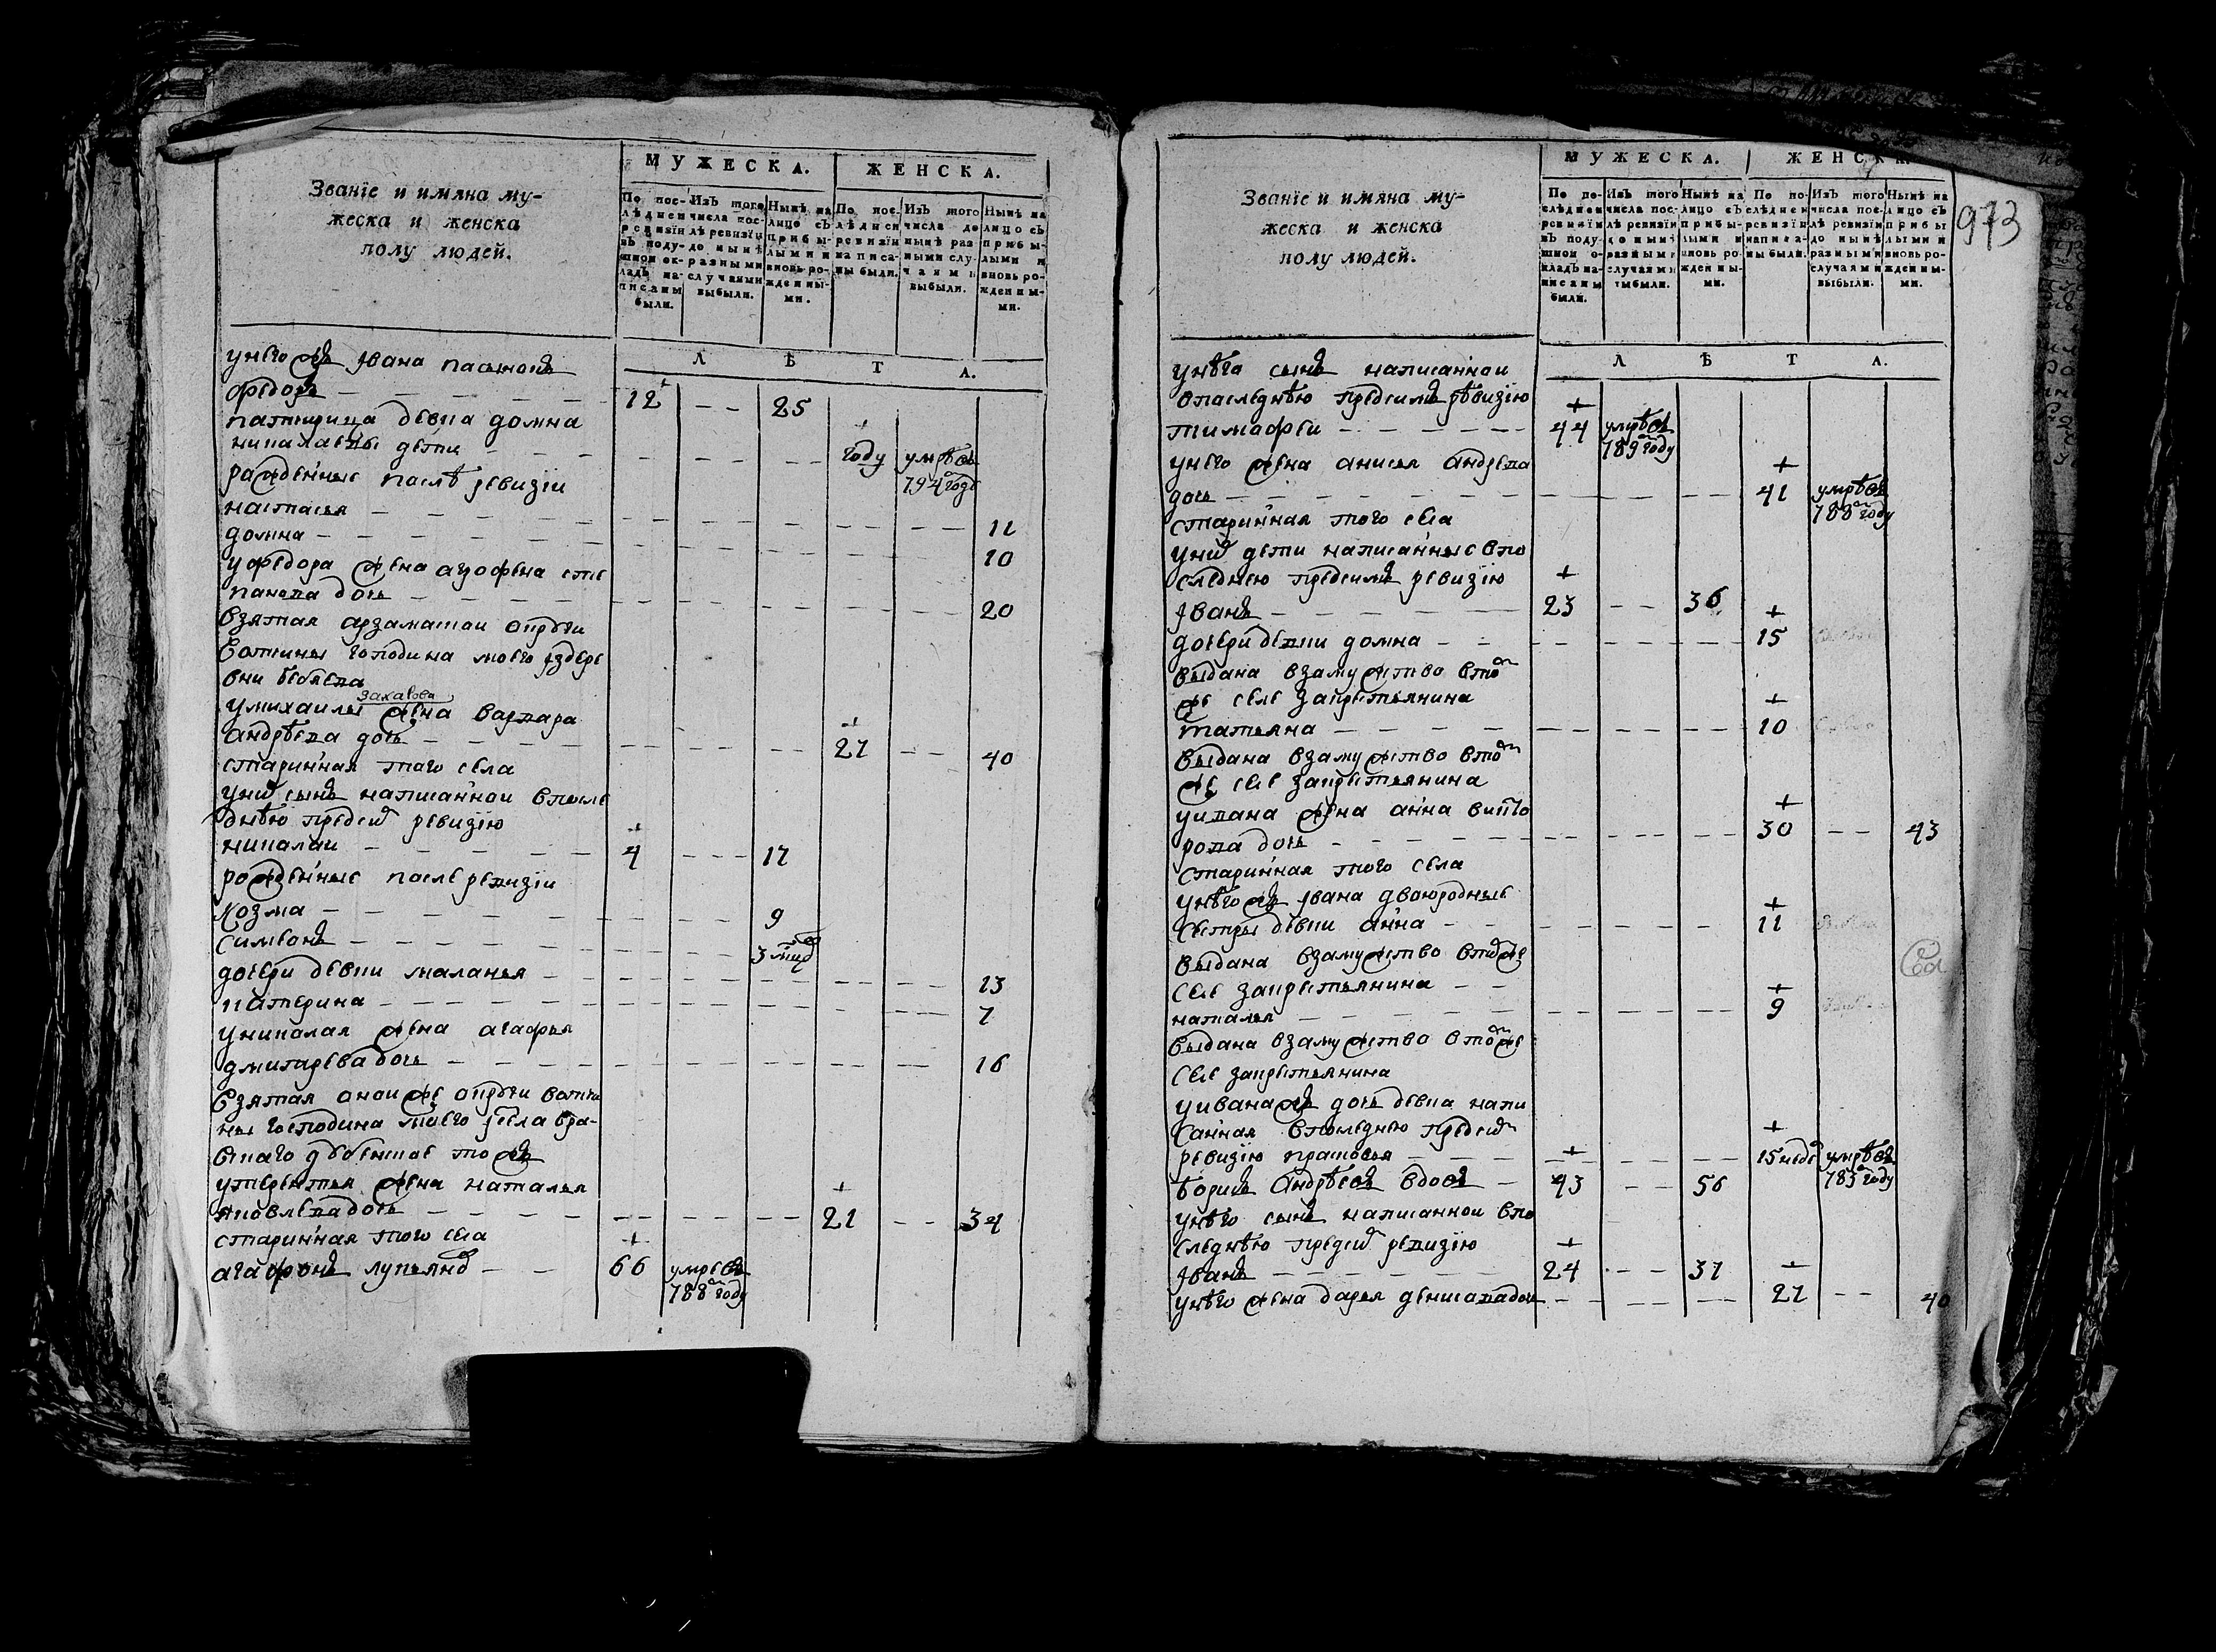 Званїе и имяна му-
жеска и женска
полу людей.
МУЖЕСКА.
ЖЕНСКА.
По пос-
лѣдней
ревизїи
въ поду-
шной ок-
ладъ на-
писаны
были.
Изъ того
числа пос-
лѣ ревизїи
до нынѣ
разными
случаями
выбыли.
Нынѣ на
лицо съ
прибы-
лыми и
вновь ро-
жденны-
ми.
По пос-
лѣдней
ревизїи
написа-
ны были.
Изъ того
числа до
нынѣ раз-
ными слу-
чаями
выбыли.
Нынѣ на
лицо съ
прибы-
лыми и
вновь ро-
жденны-
ми.
Л Ѣ Т А.
унего жъ Iвана пасынокъ
федоръ 12 25
падчерица девка домна
николаевы дети году умрѣ
794 году
рожденные послѣ ревизiи
настасья 11
домна 10
уфедора жена агофена сте
панова дочь 20
взятая арзамаской округи
вотчины господина моего iздере
вни
захарова
умихаилы жена варвара
андрѣева дочь 27 40
старинная того села
уних сынъ написанной впосле
днѣю предсим ревизiю
николаи 4 17
рожденные после ревизiи
Козма 9
Симеонъ 3 мцов
дочери девки маланья 13
катерина 7
униколая жена агафья
дмитрева дочь 16
взятая оной же округи вотчи
ны господина моего села вра-
уклементья жена наталья
яковлева дочь 21 34
стариннная того села
агафонъ лукьянов 66 умре
788 году
973
Званїе и имяна му-
жеска и женска
полу людей.
МУЖЕСКА.
ЖЕНСКА.
По по-
слѣдней
ревизїи
въ поду-
шной о-
кладъ на-
писаны
были.
Изъ того
числа пос-
лѣ ревизїи
до нынѣ
разными
случаями
выбыли.
Нынѣ на
лицо съ
прибы-
лыми и
вновь ро-
жденны-
ми.
По по-
слѣдней
ревизїи
написа-
ны были.
Изъ того
числа пос-
лѣ ревизїи
до нынѣ
разными
случаями
выбыли.
Нынѣ на
лицо съ
прибы
лыми и
вновь ро-
жденны-
ми.
Л Ѣ Т А.
унѣго сынъ написанной
впоследнѣю предсимъ рѣвизiю
тимофеи 44 умрѣ
789 году
унего жена анисья андрева
дочь 41 умрѣ
788 году
стариннная того села
уних дети написанные впо
следнею предсимъ ревизiю
Iванъ 23 36
дочери девки домна 15
выдана взамужство втом
же селе закрестьянина
татьяна 10
выдана взамужство втом
же селе закрестьянина
уивана жена анна викто
рова дочь 30 43
стариннная того села
унѣго жъ Iвана двоюродные
сестры девки анна 11
выдана взамужство втом же
селе закрестьянина
наталья 9
выдана взамужство втом же
селе закрестьянина
уивана жъ дочь девка напи
санная впоследнею предсим
ревизiю прасковья 15 недел умрѣ
783 году
борисъ Андрѣевъ вдовъ 43 56
унѣго сынъ написанной впо
следнѣю предсим ревизiю
Iванъ 24 37
унѣго жена дарья денисава дочь 27 40